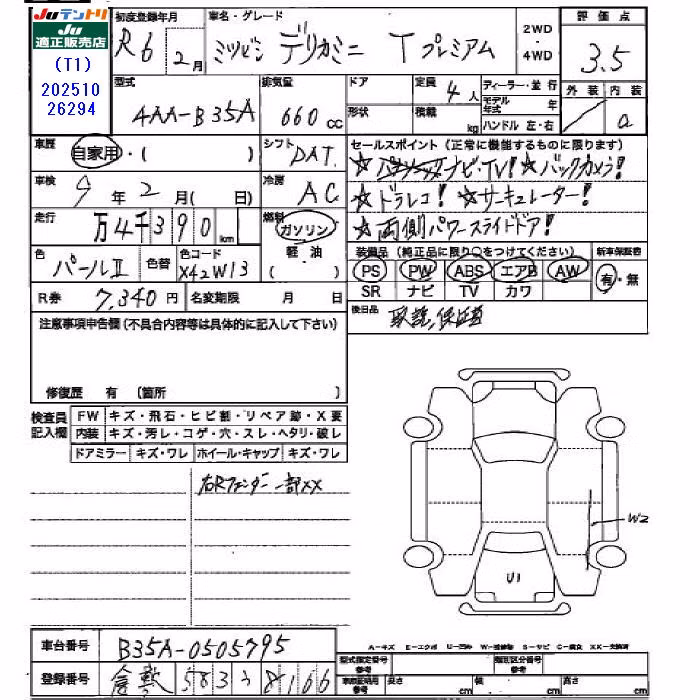 Juテントリ
Ju
適正販売店
(T1)
202510
26294
初度登録年月
R6年2月
車名・グレード
ミツビシ デリカミニ T プレミアム
2WD
・
4WD
評価点
3.5
外装 内装
a
型式
4AA-B35A
排気量
660cc
ドア
形状
定員 4人
積載 kg
ディーラー・並行
モデル年式 年
ハンドル 左・右
車歴
自家用・( )
シフト
DAT
セールスポイント(正常に機能するものに限ります)
ナビ・TV! ☆バックカメラ!
☆ドラレコ! ☆サーキュレーター!
☆両側パワースライドドア!
車検
9年2月( 日)
冷房
AC
走行
万4千390km
燃料
ガソリン
軽・油
( )
色
パールⅡ
色替
色コード
X42W13
装備品(純正品に限り○をつけてください)
PS PW ABS エアB AW
SR ナビ TV カワ
新車保証書
有・無
R券 7,340円
名変期限 月 日
後日品
取説、保証書
注意事項申告欄(不具合内容等は具体的に記入して下さい)
修復歴 有 〔箇所 〕
検査員
記入欄
FW キズ・飛石・ヒビ割・リペア跡・X要
内装 キズ・汚レ・コゲ・穴・スレ・ヘタリ・破レ
ドアミラー キズ・ワレ ホイール・キャップ キズ・ワレ
右Rフェンダー一部XX
W2
U1
車台番号
B35A-0505795
登録番号
倉敷 583 う 8166
A-キズ E-エクボ U-凹み W-補修跡 S-サビ C-腐食 XX-交換済
型式指定番号
参考
類別区分番号
参考
長さ cm
幅 cm
高さ cm